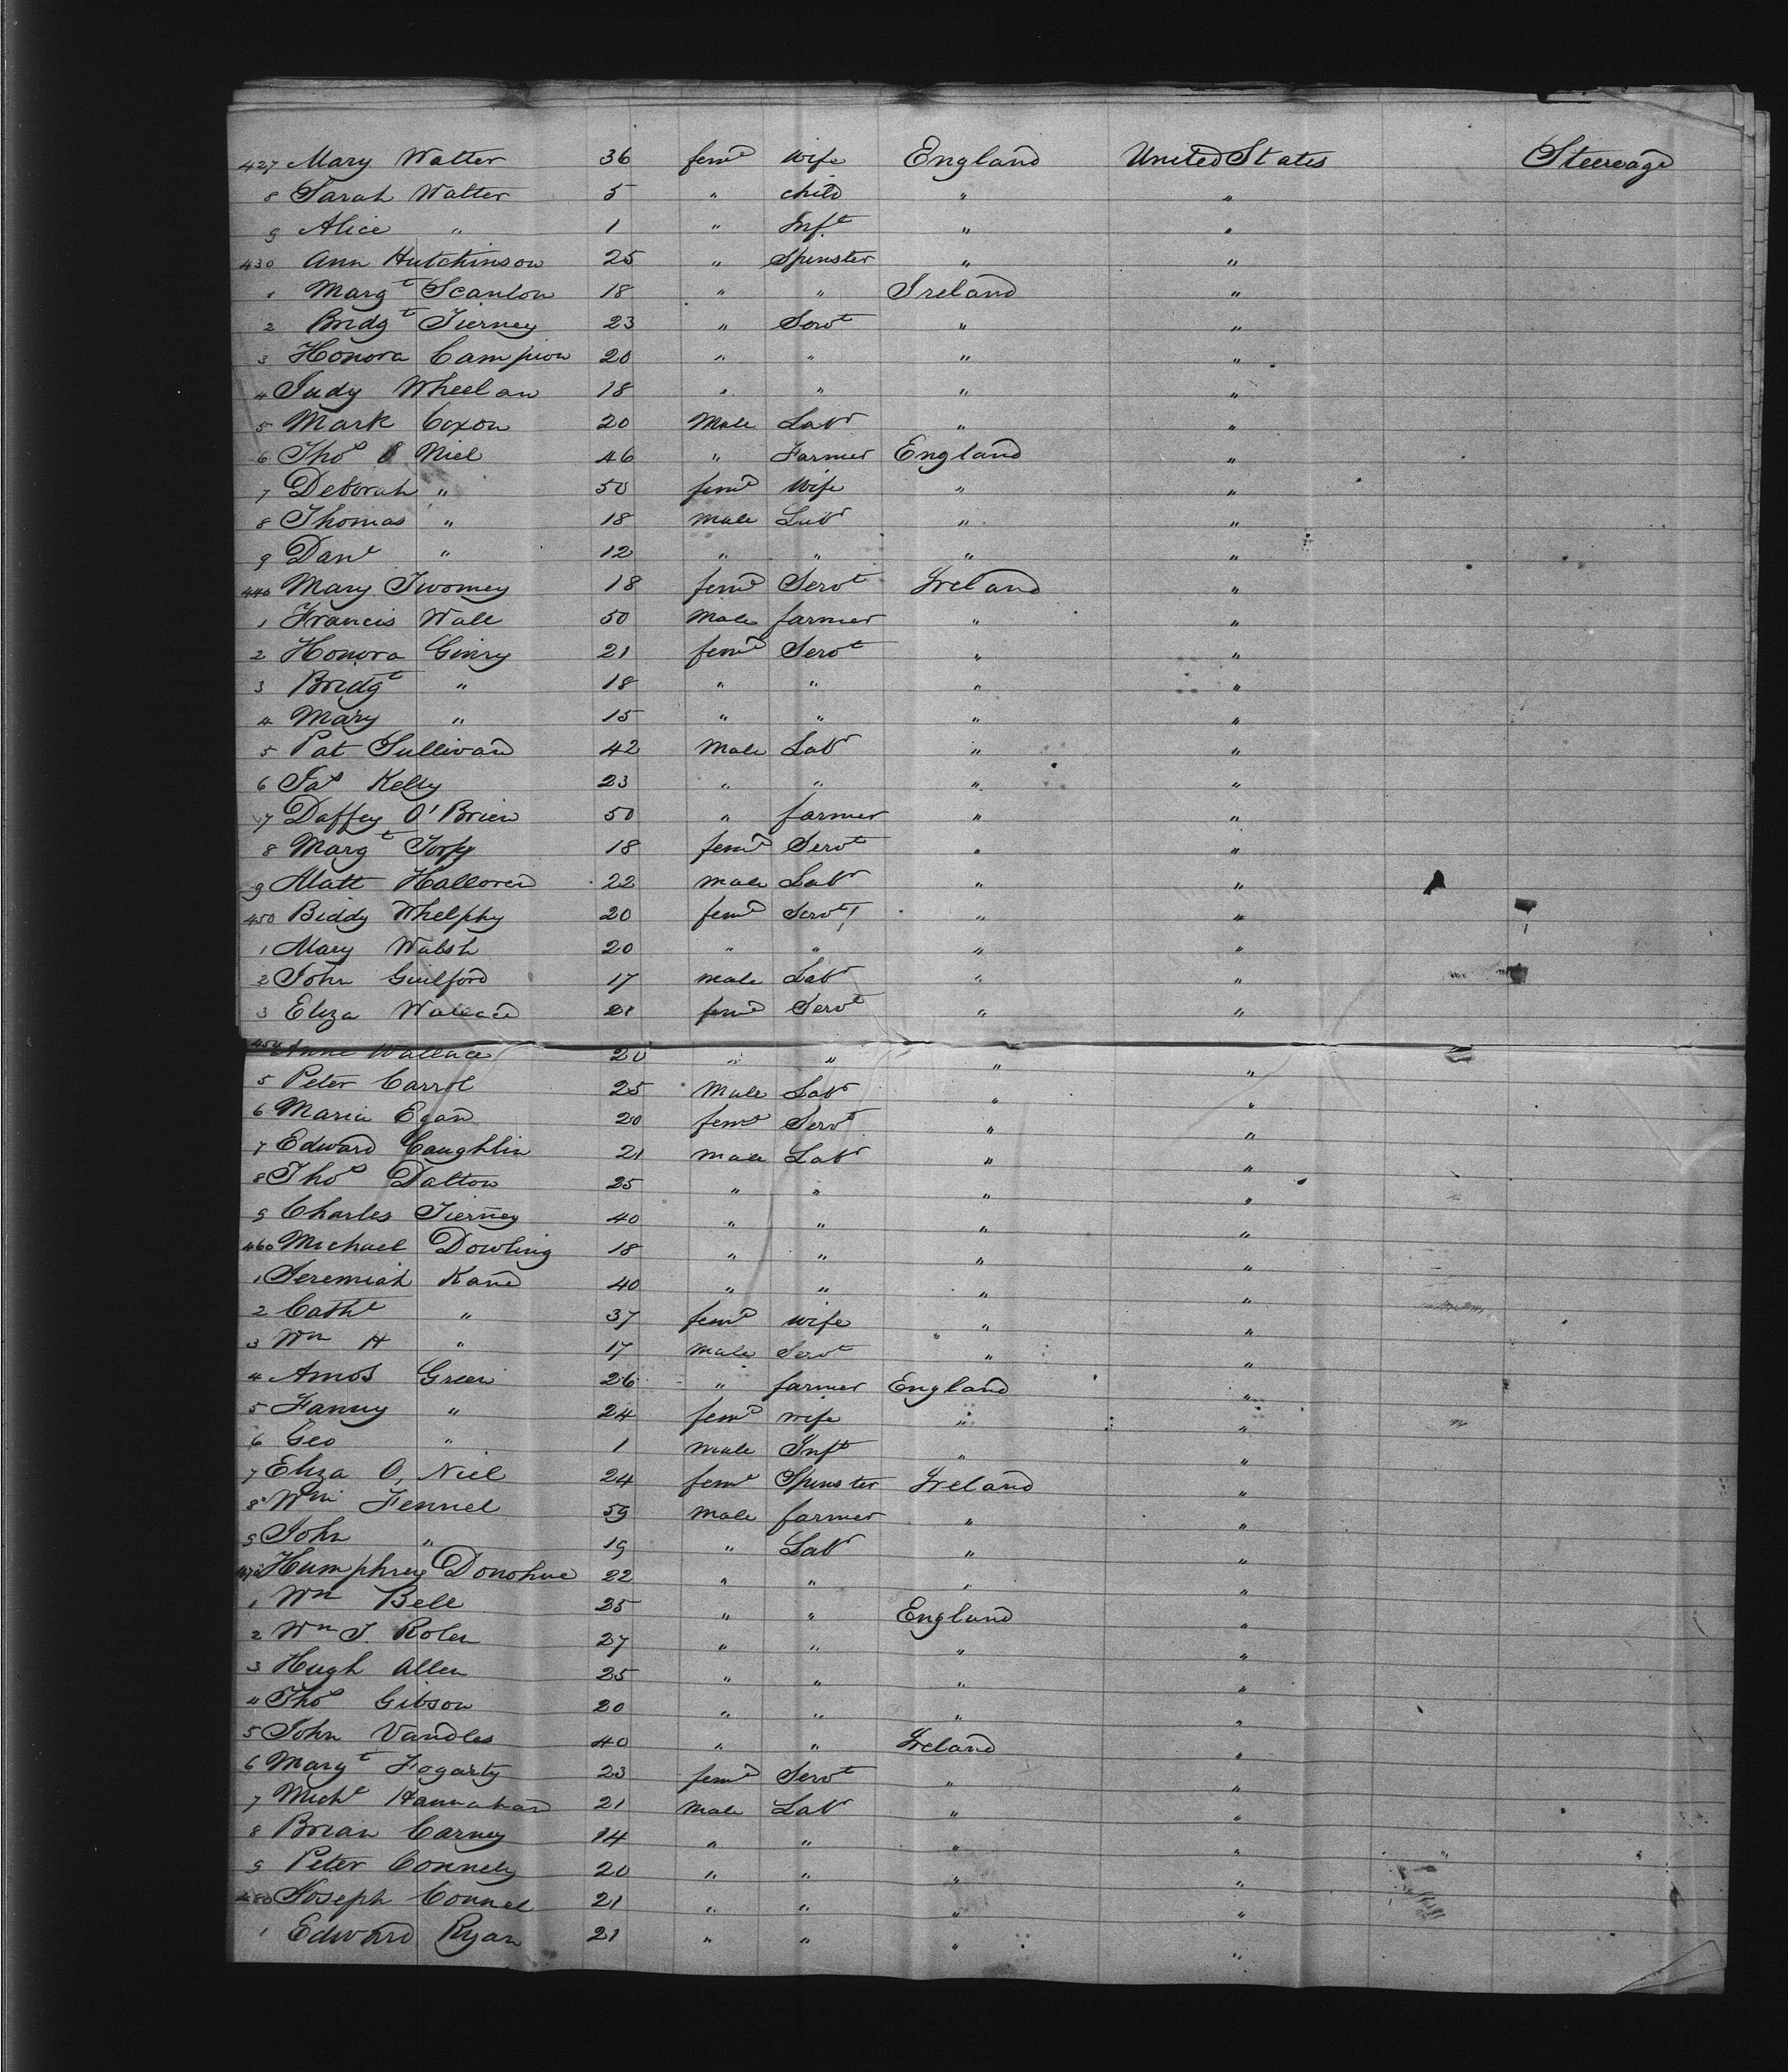 427 Mary Walter 36 fem^e wife England United States Steerage
8 Sarah Walter 5 " child " "
9 Alice " 1 " Inf^t " "
430 Ann Hutchinson 25 " Spinster " "
1 Marg^t Scanlon 18 " " Ireland "
2 Bridg^t Tierney 23 " Serv^t " "
3 Honora Campion 20 " " " "
4 Judy Wheelan 18 " " " "
5 Mark Coxon 20 Male Lab^r " "
6 Tho^s O Niel 46 " Farmer England "
7 Deborah " 50 fem^e Wife " "
8 Thomas " 18 male Lab^r " "
9 Dan^l " 12 " " " "
440 Mary Twomey 18 fem^e Serv^t Ireland "
1 Francis Wall 50 Male farmer " "
2 Honora Ginry 21 fem^e Serv^t " "
3 Bridg^t " 18 " " " "
4 Mary " 15 " " " "
5 Pat Sullivan 42 Male Lab^r " "
6 Ja^s Kelly 23 " " " "
7 Daffey O'Brien 50 " farmer " "
8 Marg^t 18 fem^e Serv^t " "
9 Matt Halloren 22 male Lab^r " "
450 Biddy Whelphy 20 fem^e Serv^t " "
1 Mary Walsh 20 " " " "
2 John Guilford 17 male Lab^r " "
3 Eliza Wallace 21 fem^e Serv^t " "
454 Anne Wallace 20 " " " "
5 Peter Carrol 25 Male Lab^r " "
6 Maria Egan 20 fem^e Serv^t " "
7 Edward Coughlin 21 male Lab^r " "
8 Tho^s Dalton 25 " " " "
9 Charles Tierney 40 " " " "
460 Michael Dowling 18 " " " "
1 Jeremiah Kane 40 " " " "
2 Cath^e " 37 fem^e wife " "
3 W^m H " 17 male Serv^t " "
4 Amos Green 26 " farmer England "
5 Fanny " 24 fem^e wife " "
6 Geo " 1 male Inf^t " "
7 Eliza O, Niel 24 fem^e Spinster Ireland "
8 W^m Fennel 59 male farmer " "
9 John " 19 " Lab^r " "
470 Humphrey Donohue 22 " " " "
1 W^m Bell 25 " " England "
2 W^m J. Rolen 27 " " " "
3 Hugh Allen 25 " " " "
4 Tho^s Gibson 20 " " " "
5 John Vandles 40 " " Ireland "
6 Marg^t Fogarty 23 fem^e Serv^t " "
7 Mich^l Hannahan 21 Male Lab^r " "
8 Brian Carney 14 " " " "
9 Peter Connely 20 " " " "
480 Joseph Connel 21 " " " "
1 Edward Ryan 21 " " " "